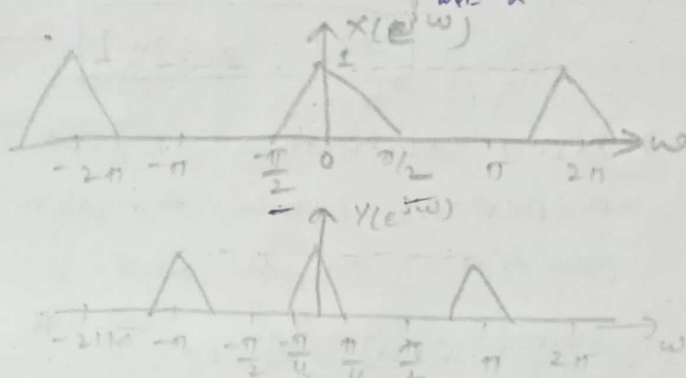 X(e^jω)
1
-2π -π -π/2 0 π/2 π 2π ω
Y(e^jω)
-2π -π -π/2 -π/4 π/4 π/2 π 2π ω